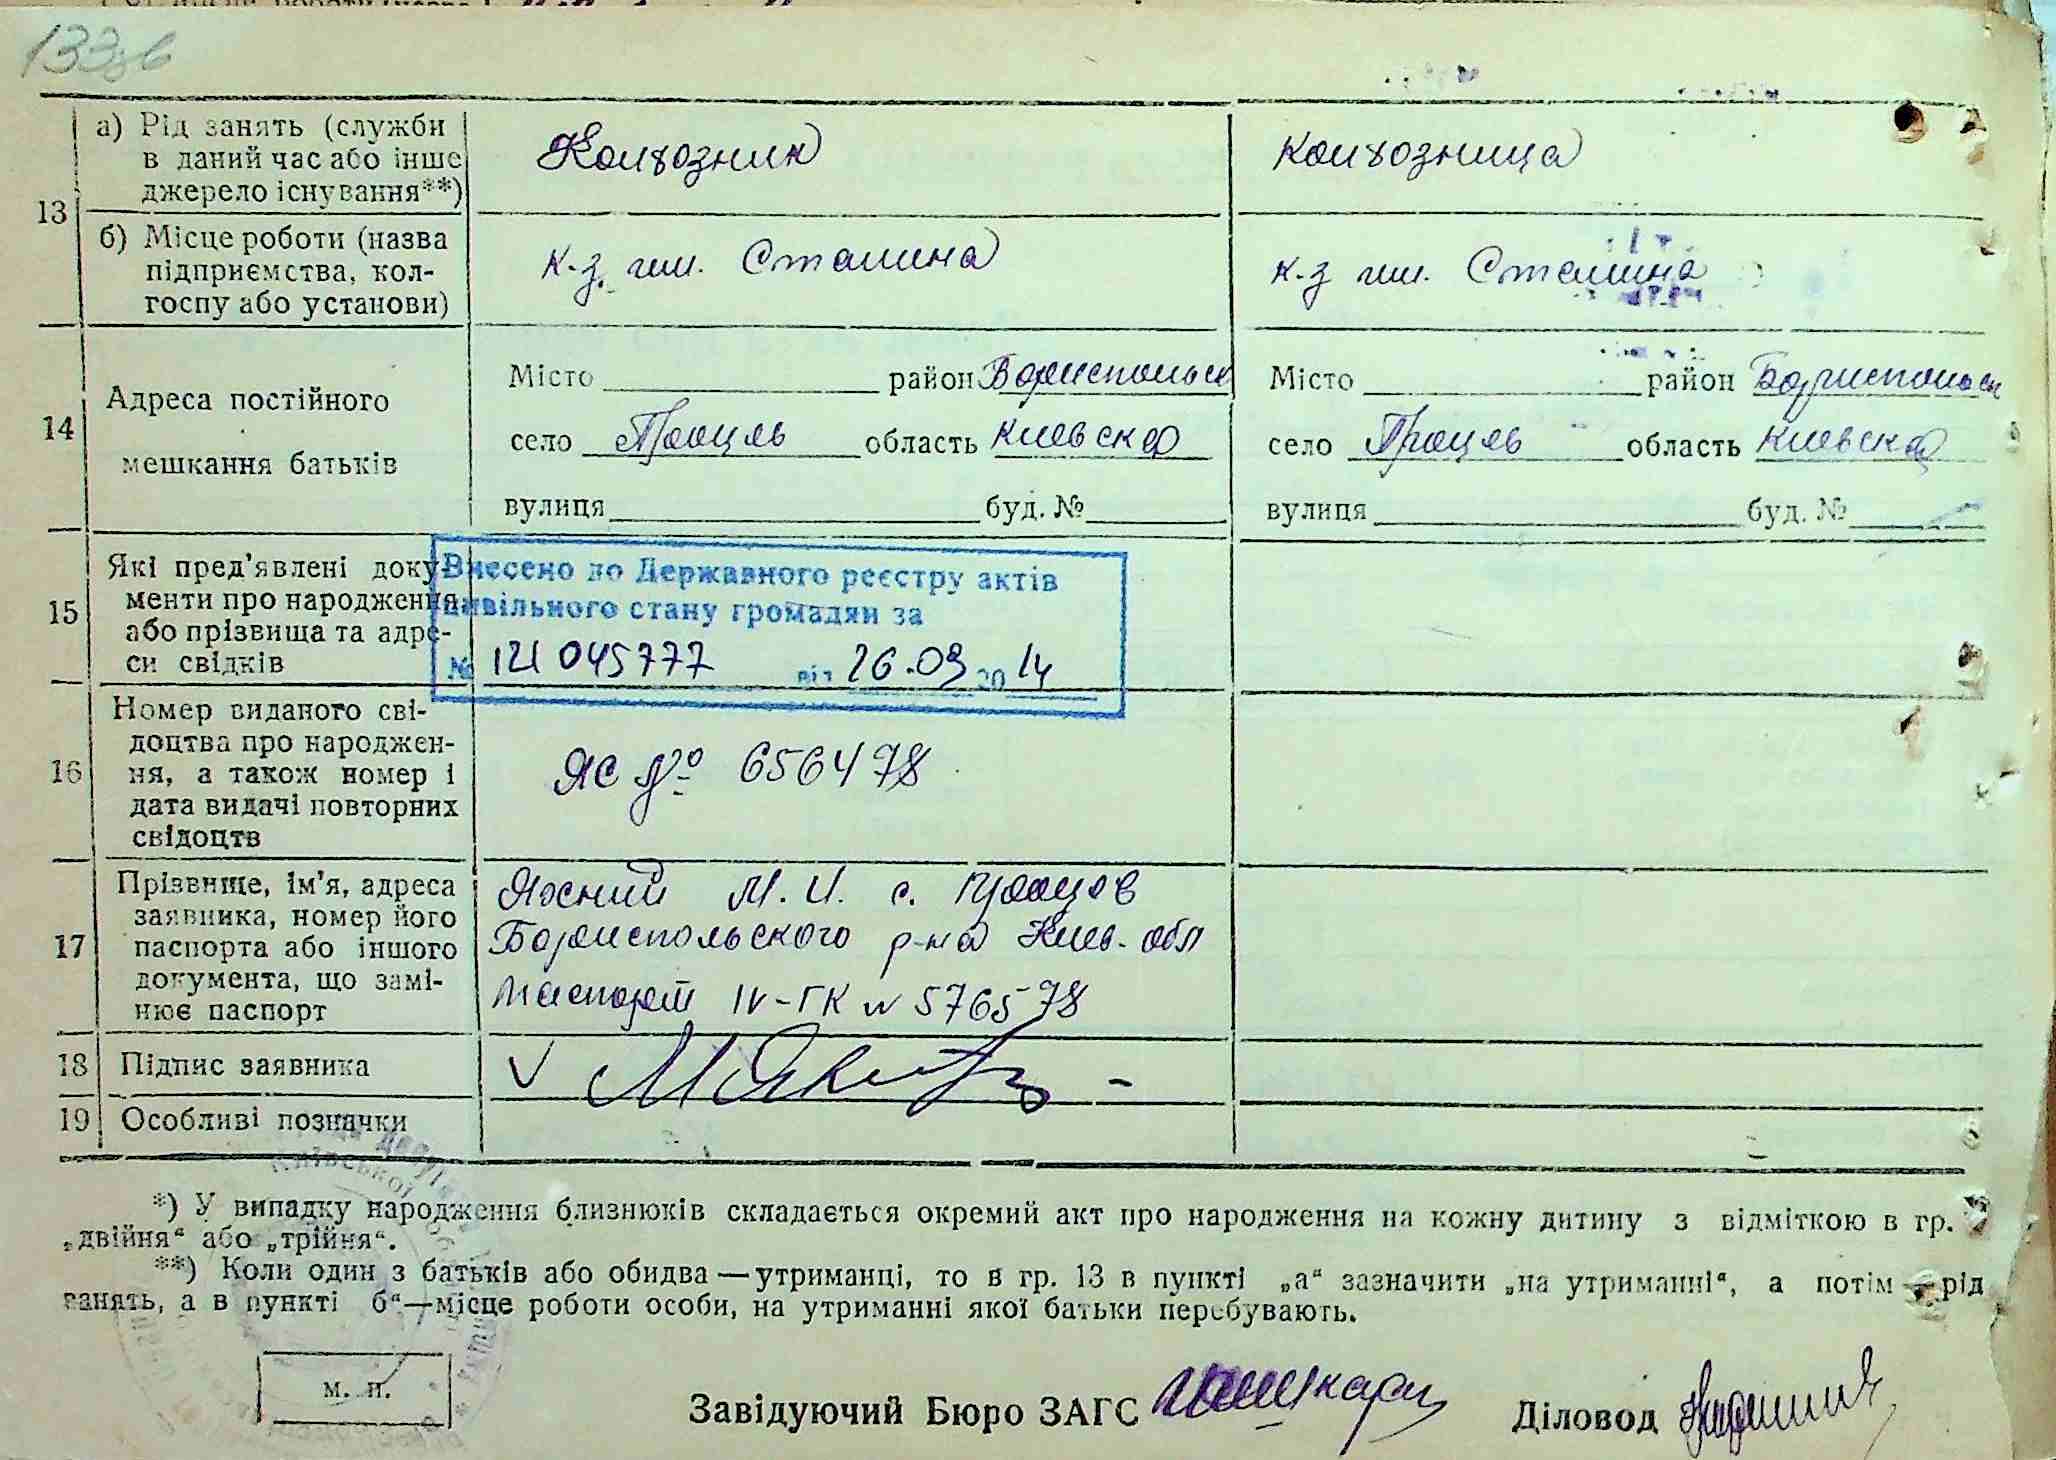 133зв
13
а) Рід занять (служби
в даний час або інше
джерело існування**)
Колхозник
Колхозница
б) Місце роботи (назва
підприємства, кол-
госпу або установи)
к-з им. Сталина
к-з им. Сталина
14
Адреса постійного
мешкання батьків
Місто район Бориспольск
село Процев область Киевская
вулиця буд. №
Місто район Бориспольск
село Процев область Киевская
вулиця буд. №
15
Які пред’явлені доку-
менти про народження
або прізвища та адре-
си свідків
Внесено до Державного реєстру актів
цивільного стану громадян за
№ 121 045777 від 26.03 2014
16
Номер виданого сві-
доцтва про народжен-
ня, а також номер і
дата видачі повторних
свідоцтв
ЯС № 656478
17
Прізвище, ім’я, адреса
заявника, номер його
паспорта або іншого
документа, що замі-
нює паспорт
М. И. с. Процев
Бориспольского р-на Киев. обл
паспорт IV-ГК № 576578
18
Підпис заявника
V
19
Особливі позначки
*) У випадку народження близнюків складається окремий акт про народження на кожну дитину з відміткою в гр. 7
„двійня“ або „трійня“.
**) Коли один з батьків або обидва — утриманці, то в гр. 13 в пункті „а“ зазначити „на утриманні“, а потім — рід
занять, а в пункті б“—місце роботи особи, на утриманні якої батьки перебувають.
Київської
м. п.
Завідуючий Бюро ЗАГС
Діловод